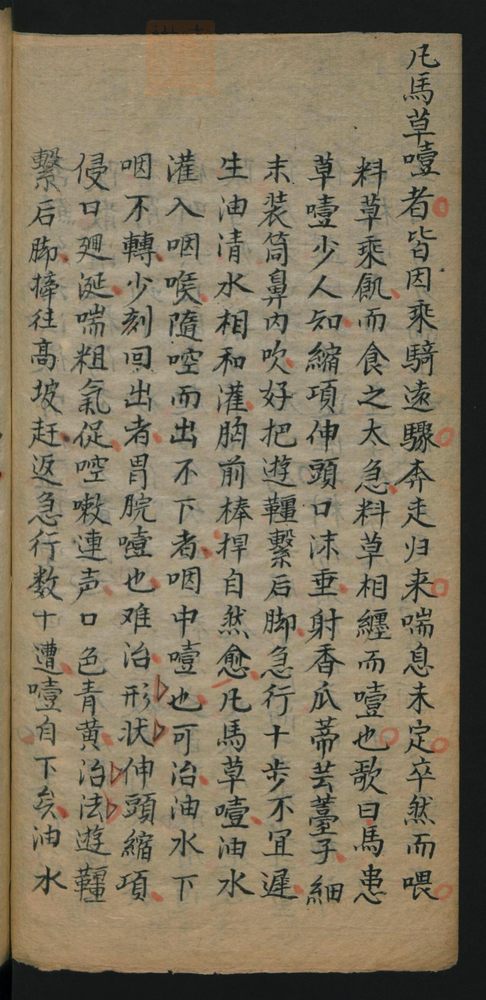 凡馬草噎者皆因乘騎遠驟奔走归来喘息未定卒然而喂
料草乘飢而食之太急料草相纏而噎也歌曰馬患
草噎少人知縮項伸頭口沫垂射香瓜蒂芸薹子細
末装筒鼻内吹好把遊韁繫后脚急行十步不宜遲
生油清水相和灌胸前棒捍自然愈凡馬草噎油水
灌入咽喉隨啌而出不下者咽中噎也可治油水下
咽不轉少刻回出者胃脘噎也难治形状伸頭縮項
侵口廻涎喘粗氣促啌嗽連声口色青黄治法遊韁
繫后脚捧往高坡赶返急行数十遭噎自下矣油水